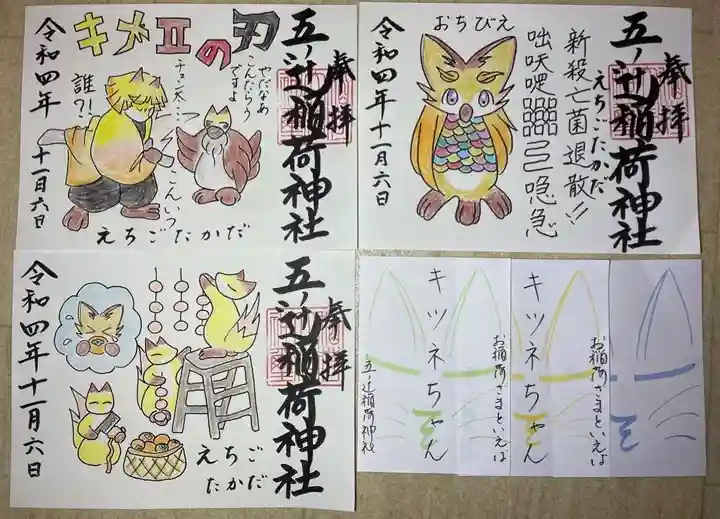 キメIIの刃
五ノ辻稲荷神社
奉拝
令和四年
十一月六日
誰?!
チュン太…
やだなぁ
こんだろう
ですよ
こんいつ
えちごたかだ
おちびえ
五ノ辻稲荷神社
奉拝
えちごたかだ
新殺亡菌退散!!
急急
令和四年
十一月六日
五ノ辻稲荷神社
奉拝
令和四年十一月六日
えちご
たかだ
キツネちゃん
お稲荷さまといえば
五ノ辻稲荷神社
キツネちゃん
お稲荷さまといえば
そ